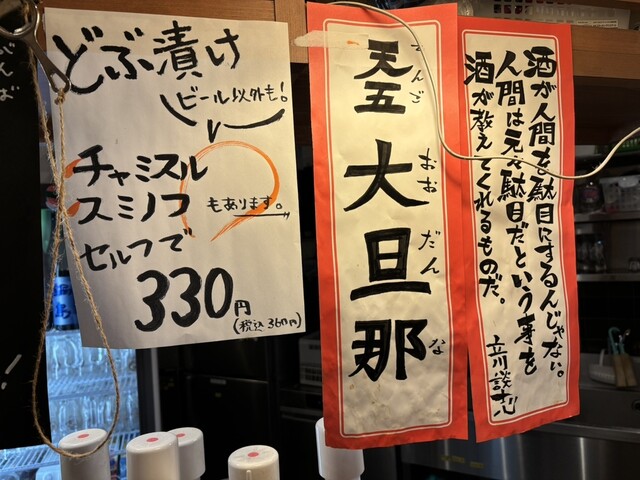 どぶ漬け
ビール以外も!
チャミスル
スミノフ
もあります。
セルフで
330円
(税込360円)
天五 大旦那
てんご おおだんな
酒が人間を駄目にするんじゃない。
人間は元々駄目だという事を
酒が教えてくれるものだ。
立川談志